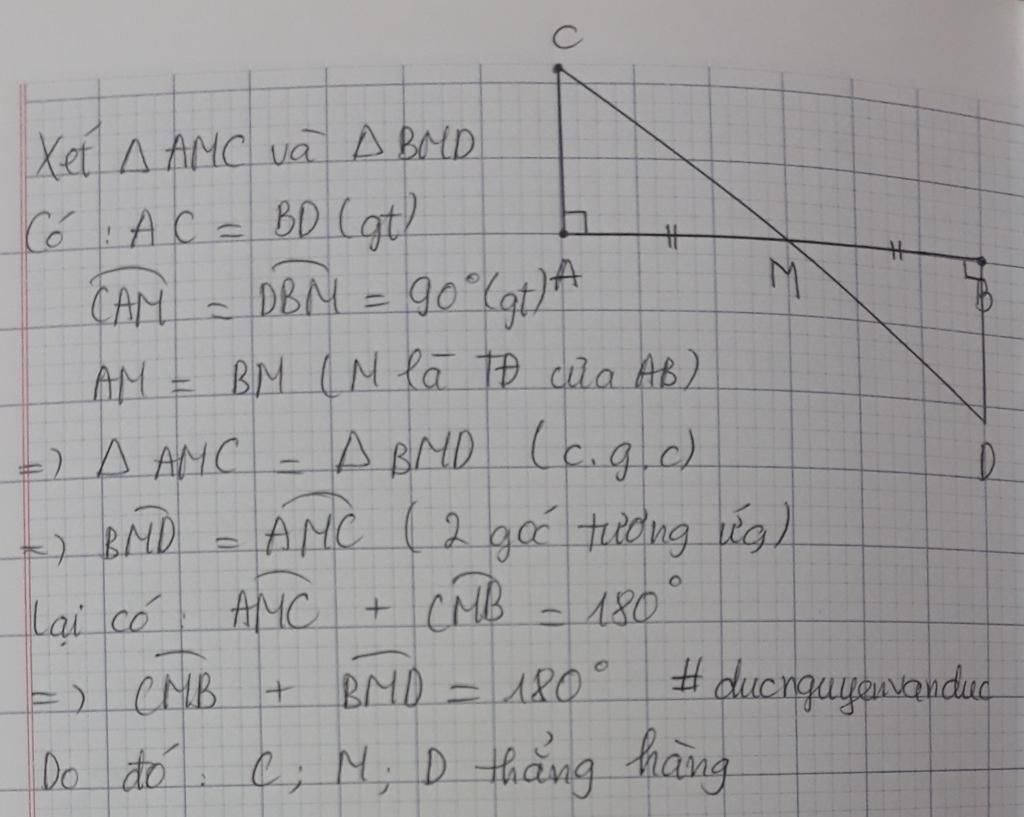 C
Xét Δ AMC và Δ BMD
Có : AC = BD (gt)
CAM = DBM = 90° (gt)
A
M
B
AM = BM (M là TĐ của AB)
=> Δ AMC = Δ BMD (c.g.c)
D
=> BMD = AMC (2 góc tương ứg)
Lại có : AMC + CMB = 180°
=> CMB + BMD = 180° #ducnguyenvanduc
Do đó : C; M; D thẳng hàng